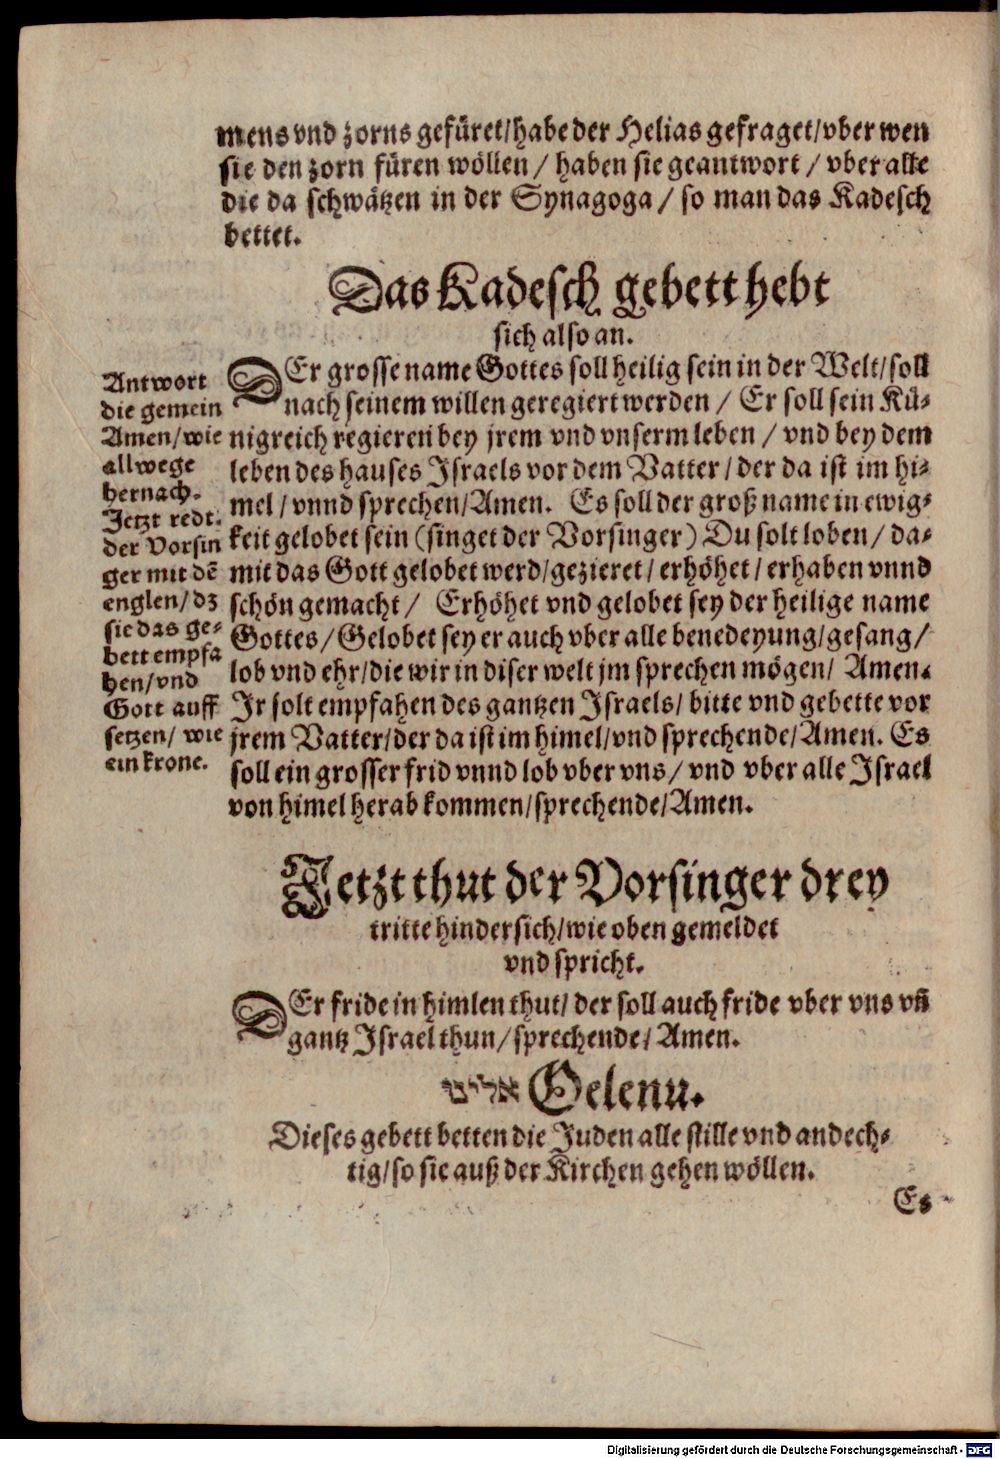 mens vnd zorns gefüret/habe der Helias gefraget/vber wen
sie den zorn füren wöllen / haben sie geantwort / vber alle
die da schwätzen in der Synagoga / so man das Kadesch
bettet.
Das Kadesch gebett hebt
sich also an.
DEr grosse name Gottes soll heilig sein in der Welt/soll
nach seinem willen geregiert werden / Er soll sein Kü-
nigreich regieren bey jrem vnd vnserm leben / vnd bey dem
leben des hauses Israels vor dem Vatter / der da ist im hi-
mel / vnnd sprechen/Amen. Es soll der groß name in ewig-
keit gelobet sein (singet der Vorsinger) Du solt loben / da-
mit das Gott gelobet werd/gezieret / erhöhet / erhaben vnnd
schön gemacht / Erhöhet vnd gelobet sey der heilige name
Gottes / Gelobet sey er auch vber alle benedeyung/gesang /
lob vnd ehr/die wir in diser welt jm sprechen mögen/ Amen.
Ir solt empfahen des gantzen Israels/ bitte vnd gebette vor
jrem Vatter/der da ist im himel/vnd sprechende/Amen. Es
soll ein grosser frid vnnd lob vber vns / vnd vber alle Israel
von himel herab kommen/sprechende/Amen.
Antwort
die gemein
Amen/wie
allwege
hernach.
Jetzt redt
der Vorsin
ger mit dē
englen/ dz
sie das ge-
bett empfa
hen/vnd
Gott auff
setzen/ wie
ein krone.
Jetzt thut der Vorsinger drey
tritte hindersich/wie oben gemeldet
vnd spricht.
DEr fride in himlen thut/ der soll auch fride vber vns vñ
gantz Israel thun / sprechende / Amen.
Oelenu.
Dieses gebett betten die Juden alle stille vnd andech-
tig/so sie auß der Kirchen gehen wöllen.
Es
Digitalisierung gefördert durch die Deutsche Forschungsgemeinschaft - DFG